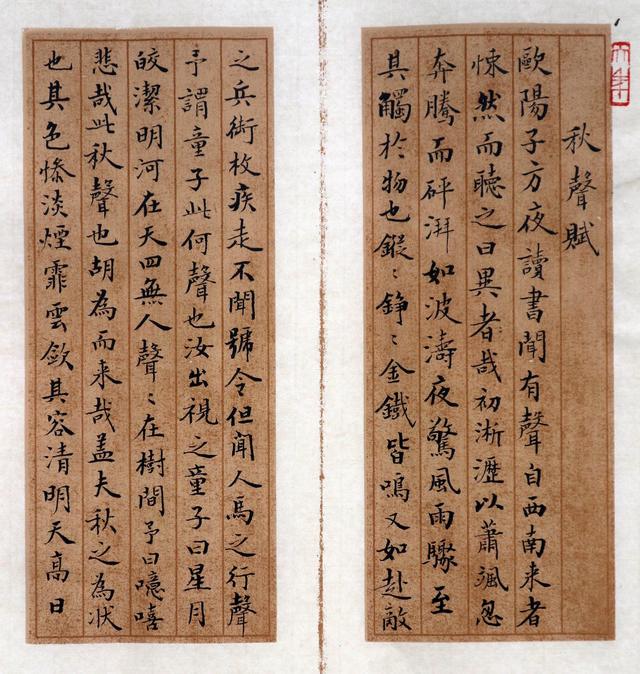 秋聲賦
歐陽子方夜讀書聞有聲自西南来者
悚然而聽之曰異者哉初淅瀝以蕭颯忽
奔騰而砰湃如波濤夜驚風雨驟至
其觸於物也鏦〻錚〻金鐵皆鳴又如赴敵
之兵銜枚疾走不聞號令但聞人馬之行聲
予謂童子此何聲也汝出視之童子曰星月
皎潔明河在天四無人聲〻在樹間予曰噫嘻
悲哉此秋聲也胡為而来哉盖夫秋之為狀
也其色慘淡煙霏雲斂其容清明天高日